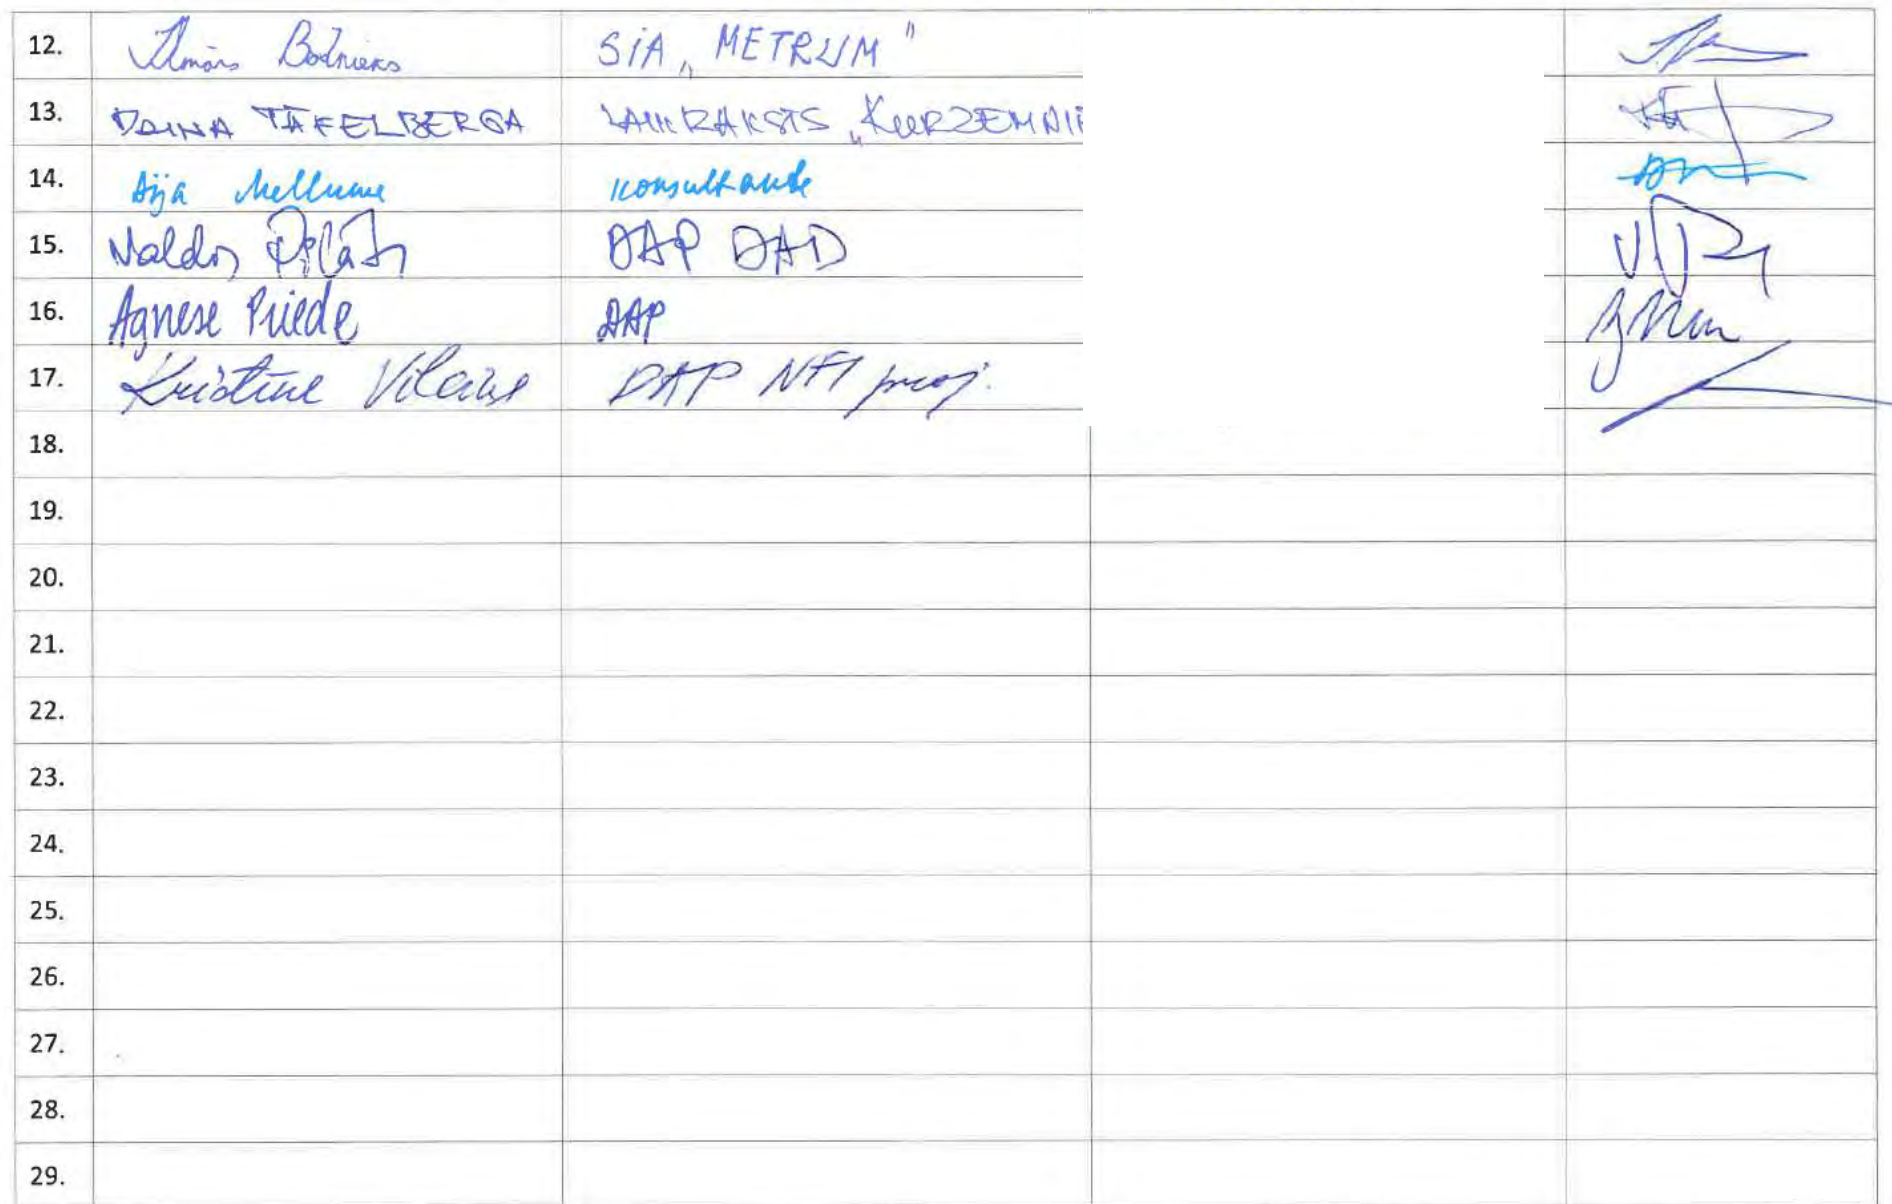 12. Ilmārs Bodnieks SIA „METRUM"
13. DAINA TĀFELBERGA LAIKRAKSTS „KURZEMNIE
14. Aija Mellume konsultante
15. Valdis Pilāts DAP DAD
16. Agnese Priede DAP
17. Kristīne Vilciņa DAP NFI proj.
18.
19.
20.
21.
22.
23.
24.
25.
26.
27.
28.
29.